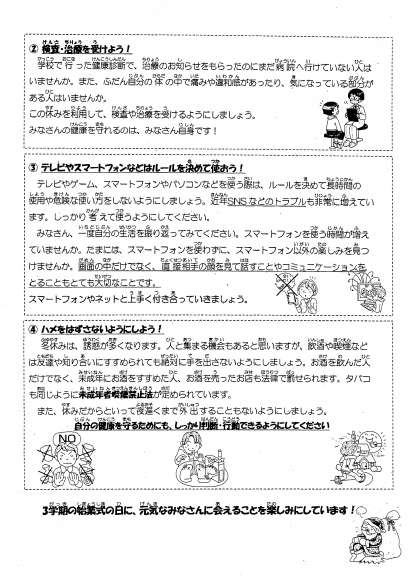 ② 検査・治療を受けよう！
学校で行った健康診断で、治療のお知らせをもらったのにまだ病院へ行けていない人は
いませんか。また、ふだん自分の体の中で痛みや違和感があったり、気になっている部分が
ある人はいませんか。
この休みを利用して、検査や治療を受けるようにしましょう。
みなさんの健康を守れるのは、みなさん自身です！
③ テレビやスマートフォンなどはルールを決めて使おう！
テレビやゲーム、スマートフォンやパソコンなどを使う際は、ルールを決めて長時間の
使用や危険な使い方をしないようにしましょう。近年SNSなどのトラブルも非常に増えてい
ます。しっかり考えて使うようにしてください。
みなさん、一度自分の生活を振り返ってみてください。スマートフォンを使う時間が増え
ていませんか。たまには、スマートフォンを使わずに、スマートフォン以外の楽しみを見つ
けませんか。画面の中だけでなく、直接相手の顔を見て話すことやコミュニケーションを
とることもとても大切なことです。
スマートフォンやネットと上手く付き合っていきましょう。
④ ハメをはずさないようにしよう！
冬休みは、誘惑が多くなります。人と集まる機会もあると思いますが、飲酒や喫煙など
は友達や知り合いにすすめられても絶対に手を出さないようにしましょう。お酒を飲んだ人
だけでなく、未成年にお酒をすすめた人、お酒を売ったお店も法律で罰せられます。タバコ
も同じように未成年者喫煙禁止法が定められています。
また、休みだからといって夜遅くまで外出することもないようにしましょう。
自分の健康を守るためにも、しっかり判断・行動できるようにしてください
NO
3学期の始業式の日に、元気なみなさんに会えることを楽しみにしています！